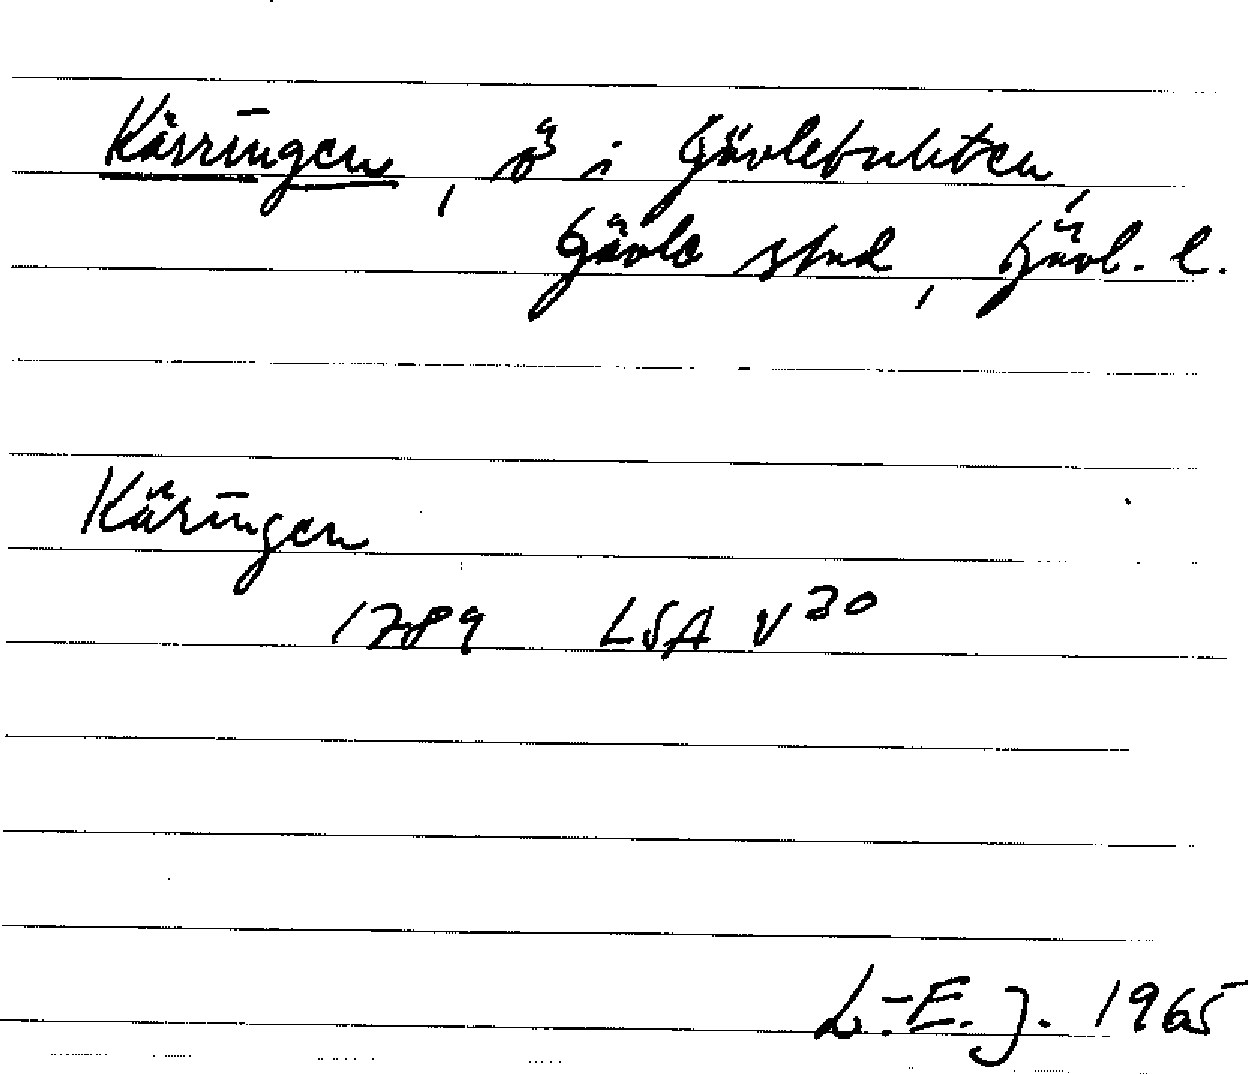 Kärringen, ö i Gävlebukten,
Gävle stad, Gävl. l.
Käringen
1789 LSA V 30
L.-E. J. 1965